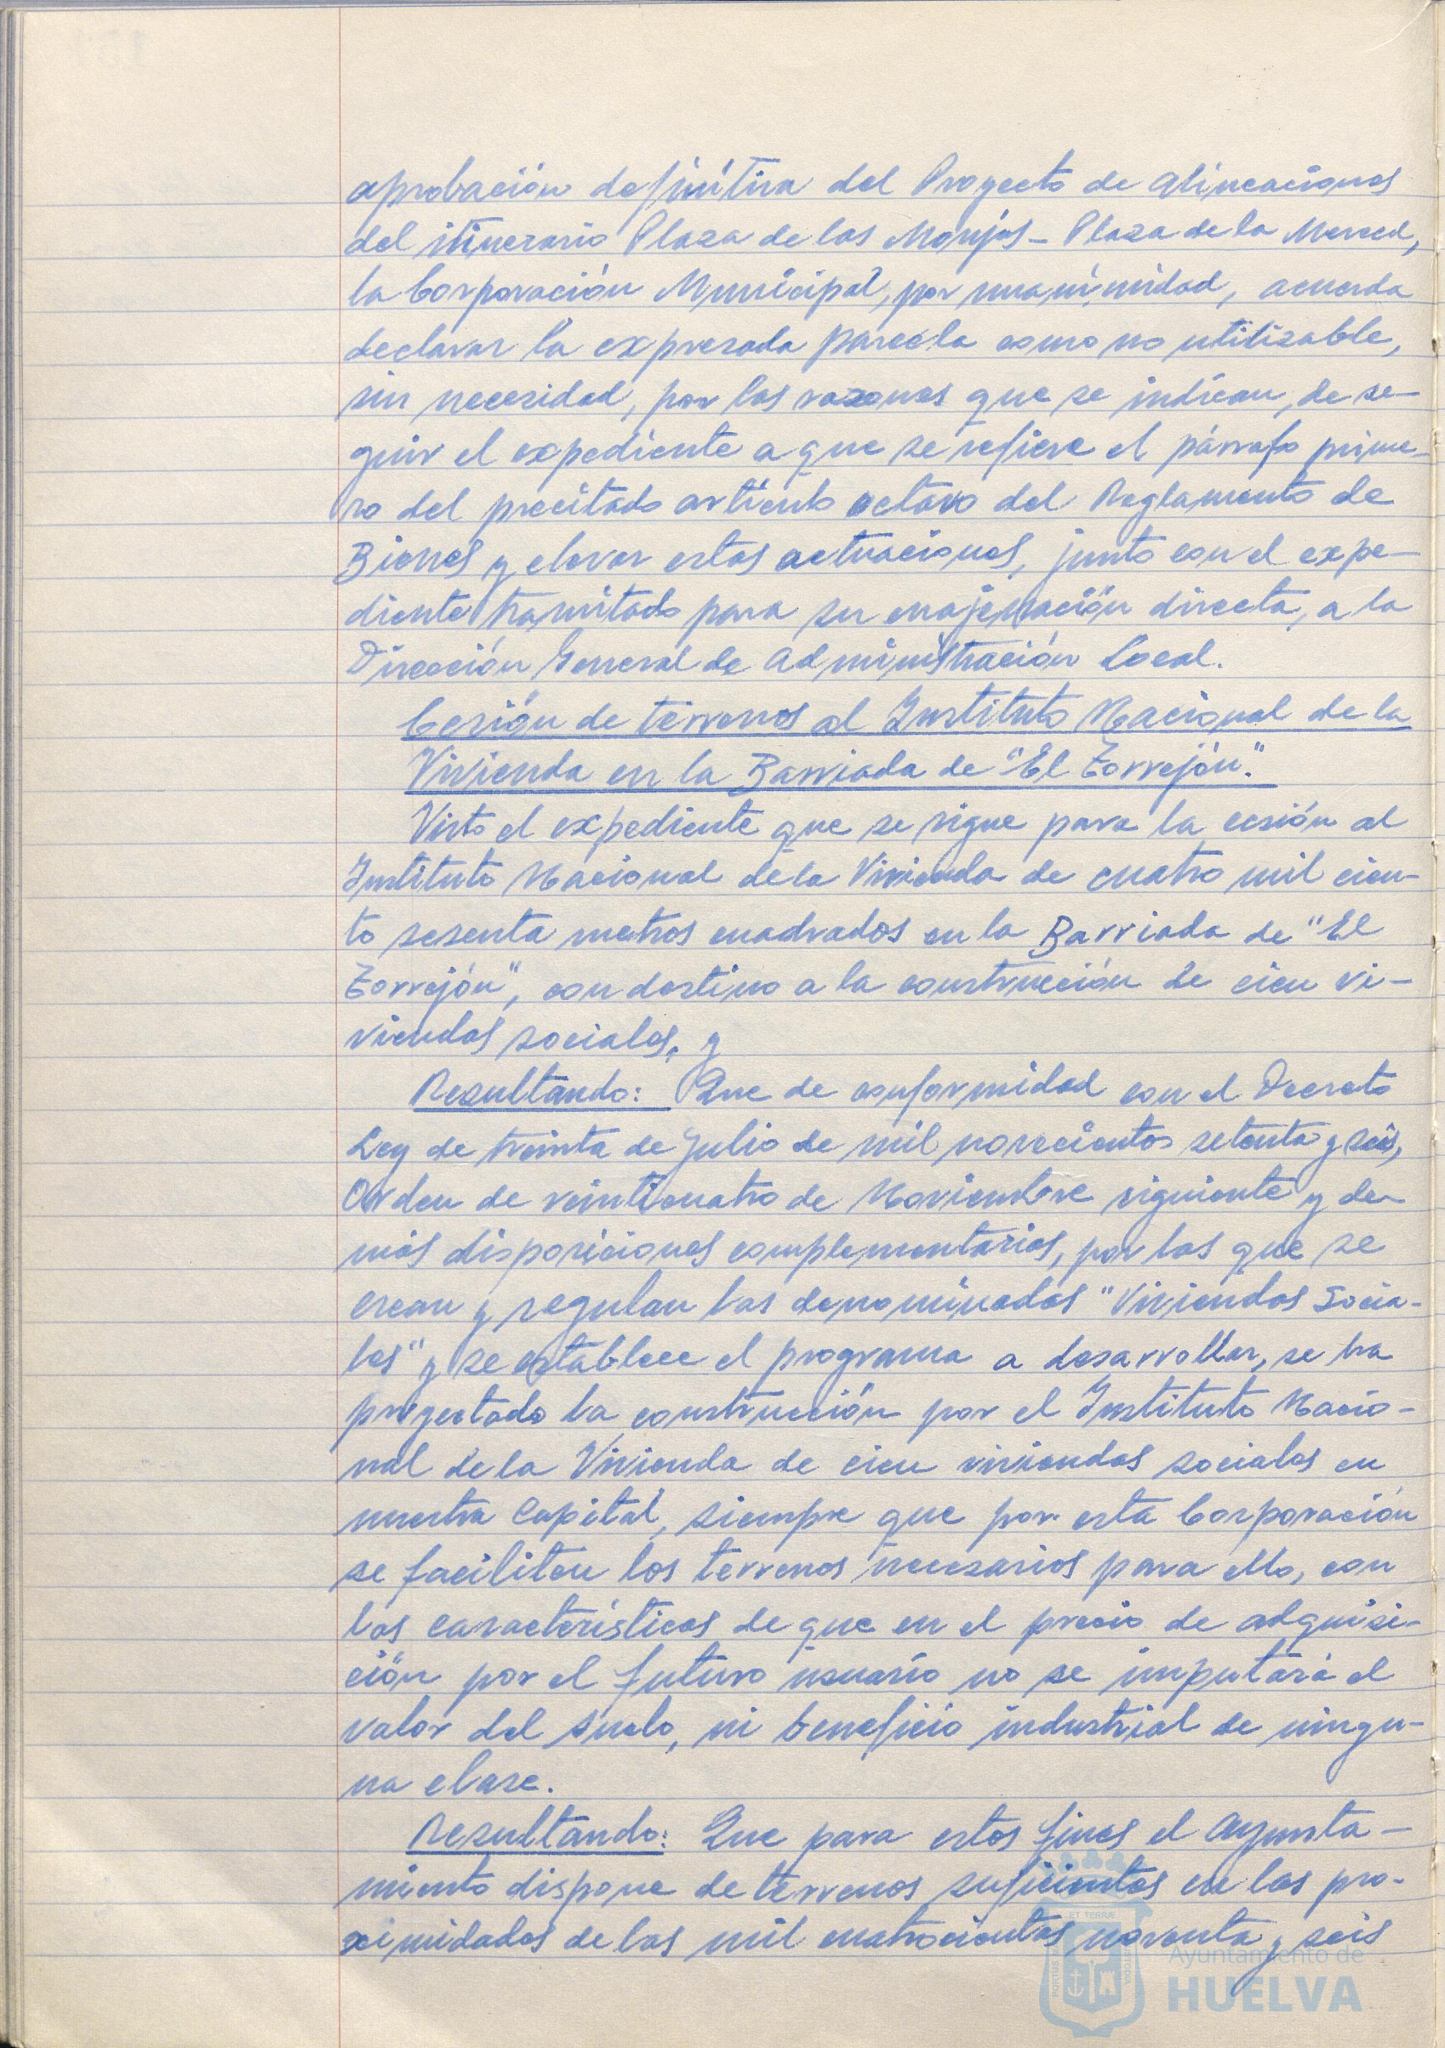 aprobación definitiva del Proyecto de alineaciones
del itinerario Plaza de las Monjas - Plaza de la Merced,
la Corporación Municipal, por unanimidad, acuerda
declarar la expresada parcela como no utilizable,
sin necesidad, por las razones que se indican, de se-
guir el expediente a que se refiere el párrafo prime-
ro del precitado artículo octavo del Reglamento de
Bienes y elevar estas actuaciones, junto con el expe-
diente tramitado para su enajenación directa, a la
Dirección General de Administración Local.
Cesión de terrenos al Instituto Nacional de la
Vivienda en la Barriada de "El Torrejón".
Visto el expediente que se sigue para la cesión al
Instituto Nacional de la Vivienda de cuatro mil cien-
to sesenta metros cuadrados en la Barriada de "El
Torrejón", con destino a la construcción de cien vi-
viendas sociales, y
Resultando: Que de conformidad con el Decreto
Ley de treinta de Julio de mil novecientos setenta y seis,
Orden de veinticuatro de Noviembre siguiente y de-
más disposiciones complementarias, por las que se
crean y regulan las denominadas "Viviendas Socia-
les" y se establece el programa a desarrollar, se ha
proyectado la construcción por el Instituto Nacio-
nal de la Vivienda de cien viviendas sociales en
nuestra Capital, siempre que por esta Corporación
se faciliten los terrenos necesarios para ello, con
las características de que en el precio de adquisi-
ción por el futuro usuario no se imputará el
valor del suelo, ni beneficio industrial de ningu-
na clase.
Resultando: Que para estos fines el Ayunta-
miento dispone de terrenos suficientes en las pro-
ximidades de las mil cuatrocientas noventa y seis
Ayuntamiento de
HUELVA